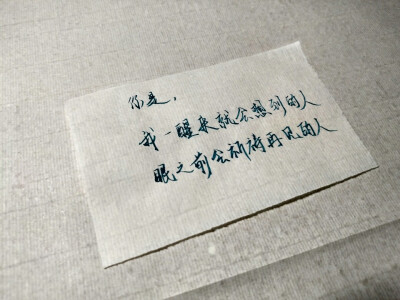 你是，
我一醒来就会想到的人
眠之前会祈祷再见的人